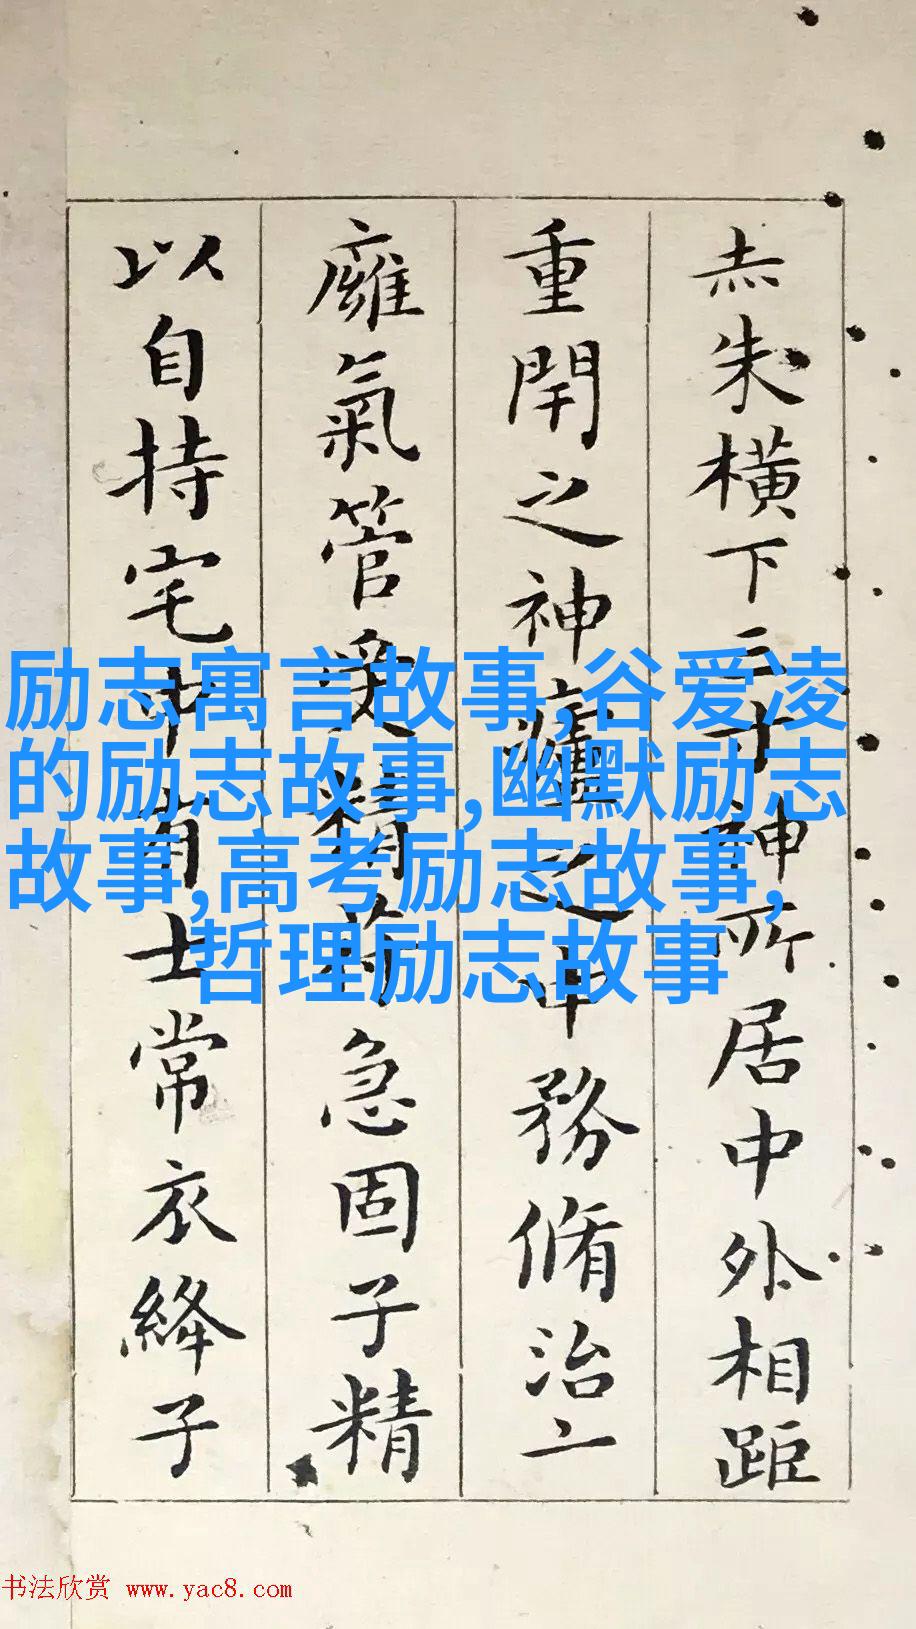 励志寓言故事,谷爱凌
的励志故事,幽默励志
故事,高考励志故事,
哲理励志故事
赤朱橫下三寸神所居中外相距
重閇之神廬之中務脩治
膺氣管受精符急固子精
以自持宅中有士常衣絳子
书法欣赏 www.yac8.com